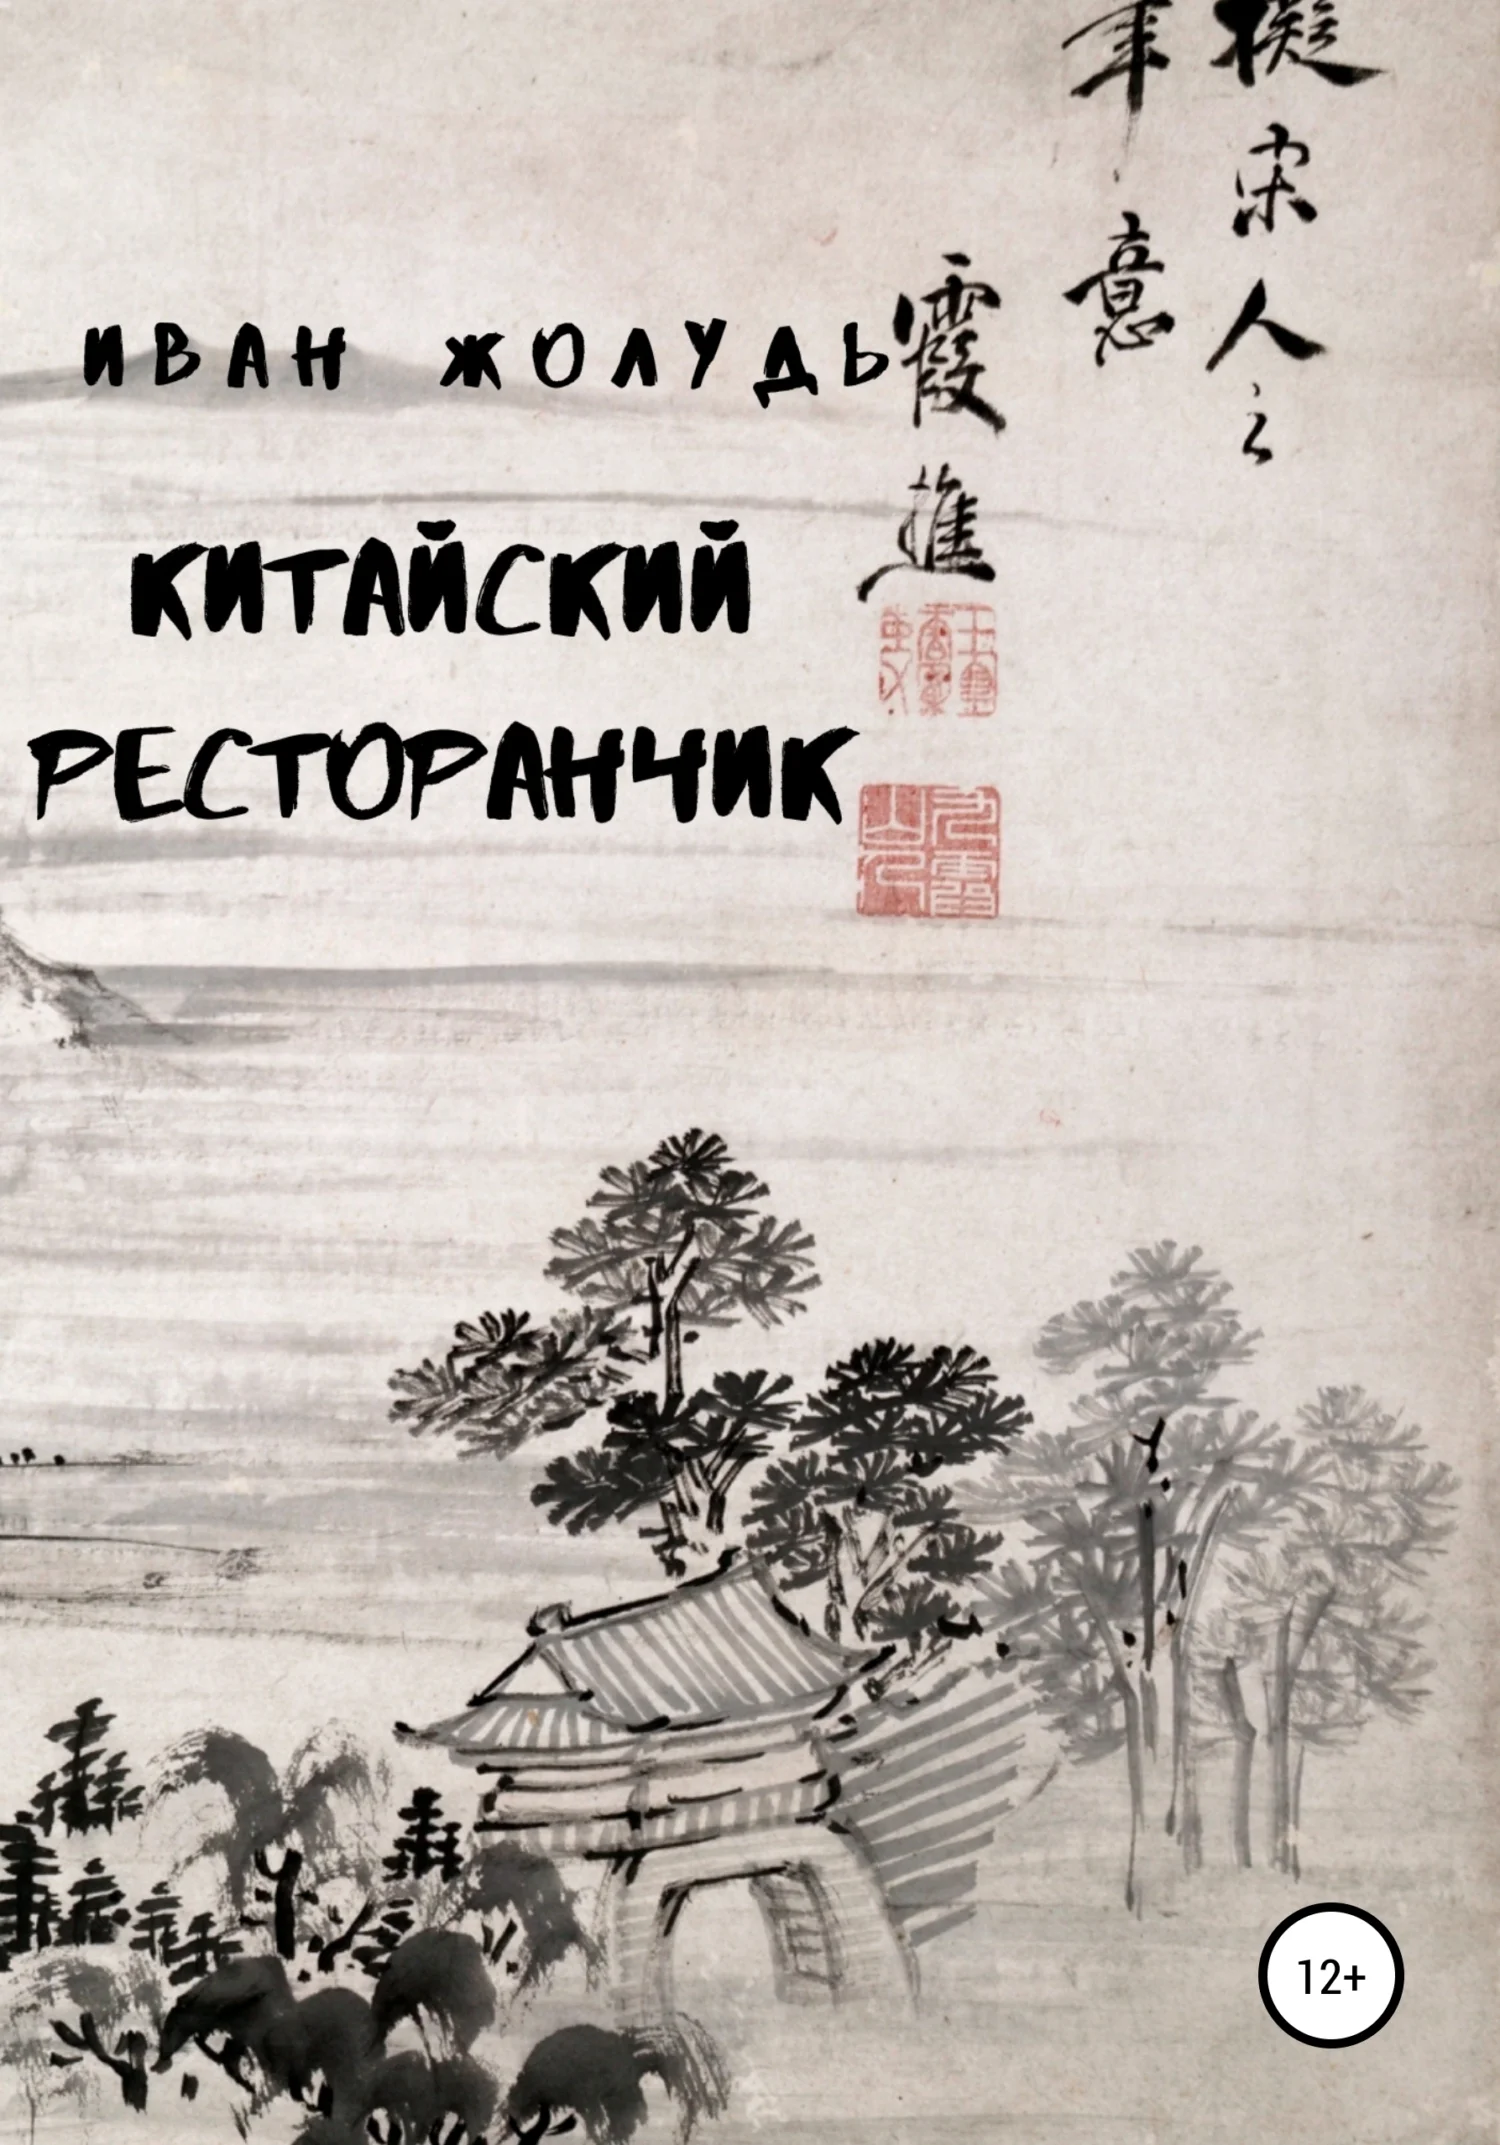 擬宋人之
筆意
霞樵
ИВАН ЖОЛУДЬ
КИТАЙСКИЙ
РЕСТОРАНЧИК
12+